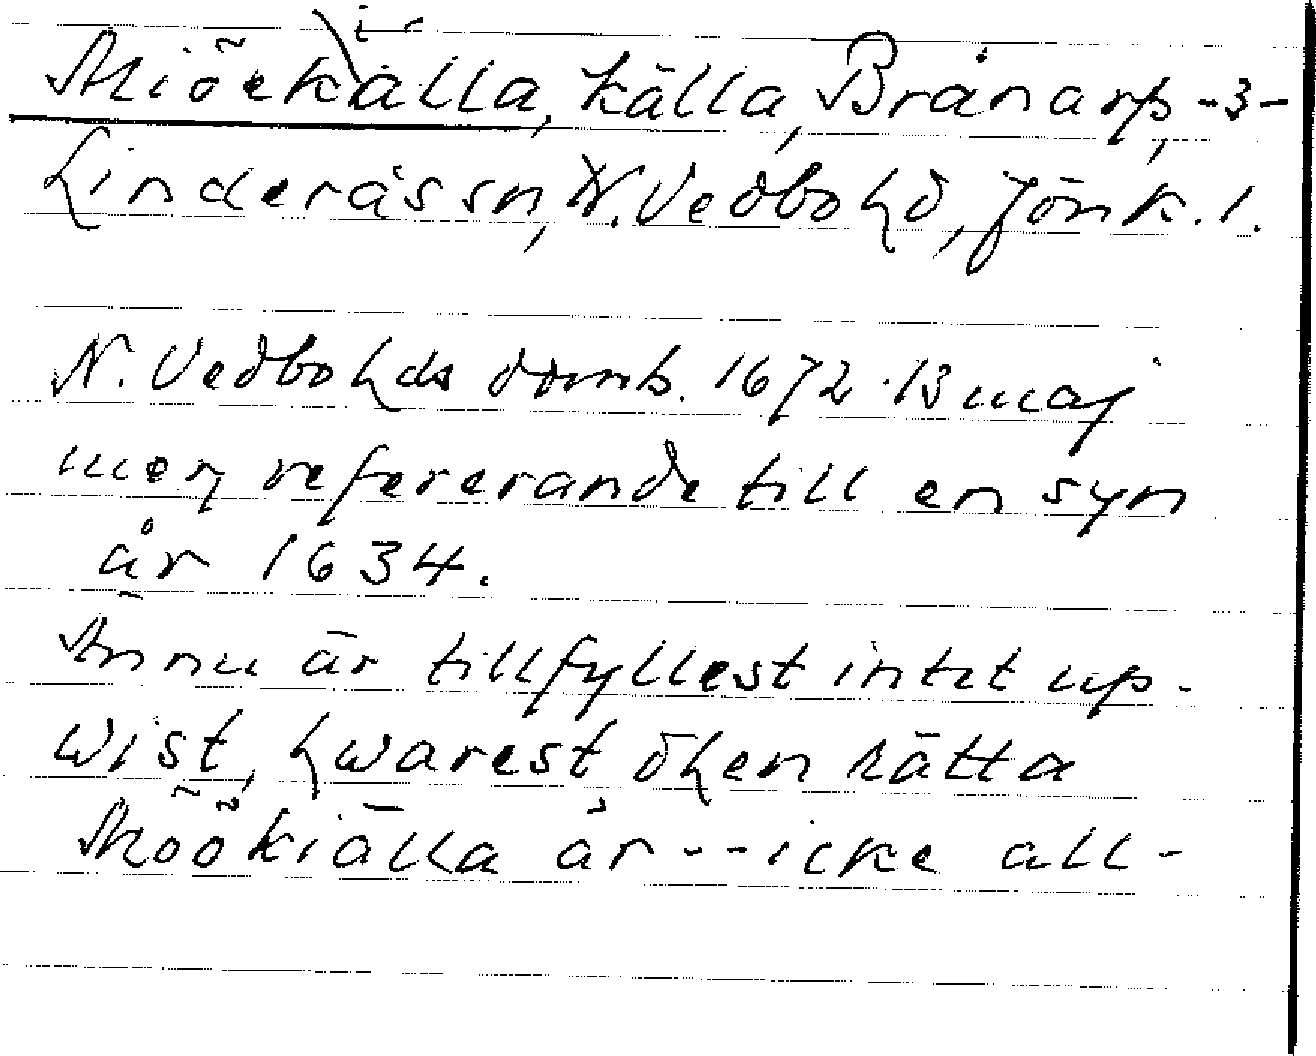 Miöekiälla, källa, Brånarp, -3-
Linderås sn, N. Vedbo hd, Jönk. l.
N. Vedbo hds domb. 1672 13 maj
men refererande till en syn
år 1634.
Ännu är tillfyllest intet up-
wist, hwarest dhen rätta
Möökiälla är -- icke all-